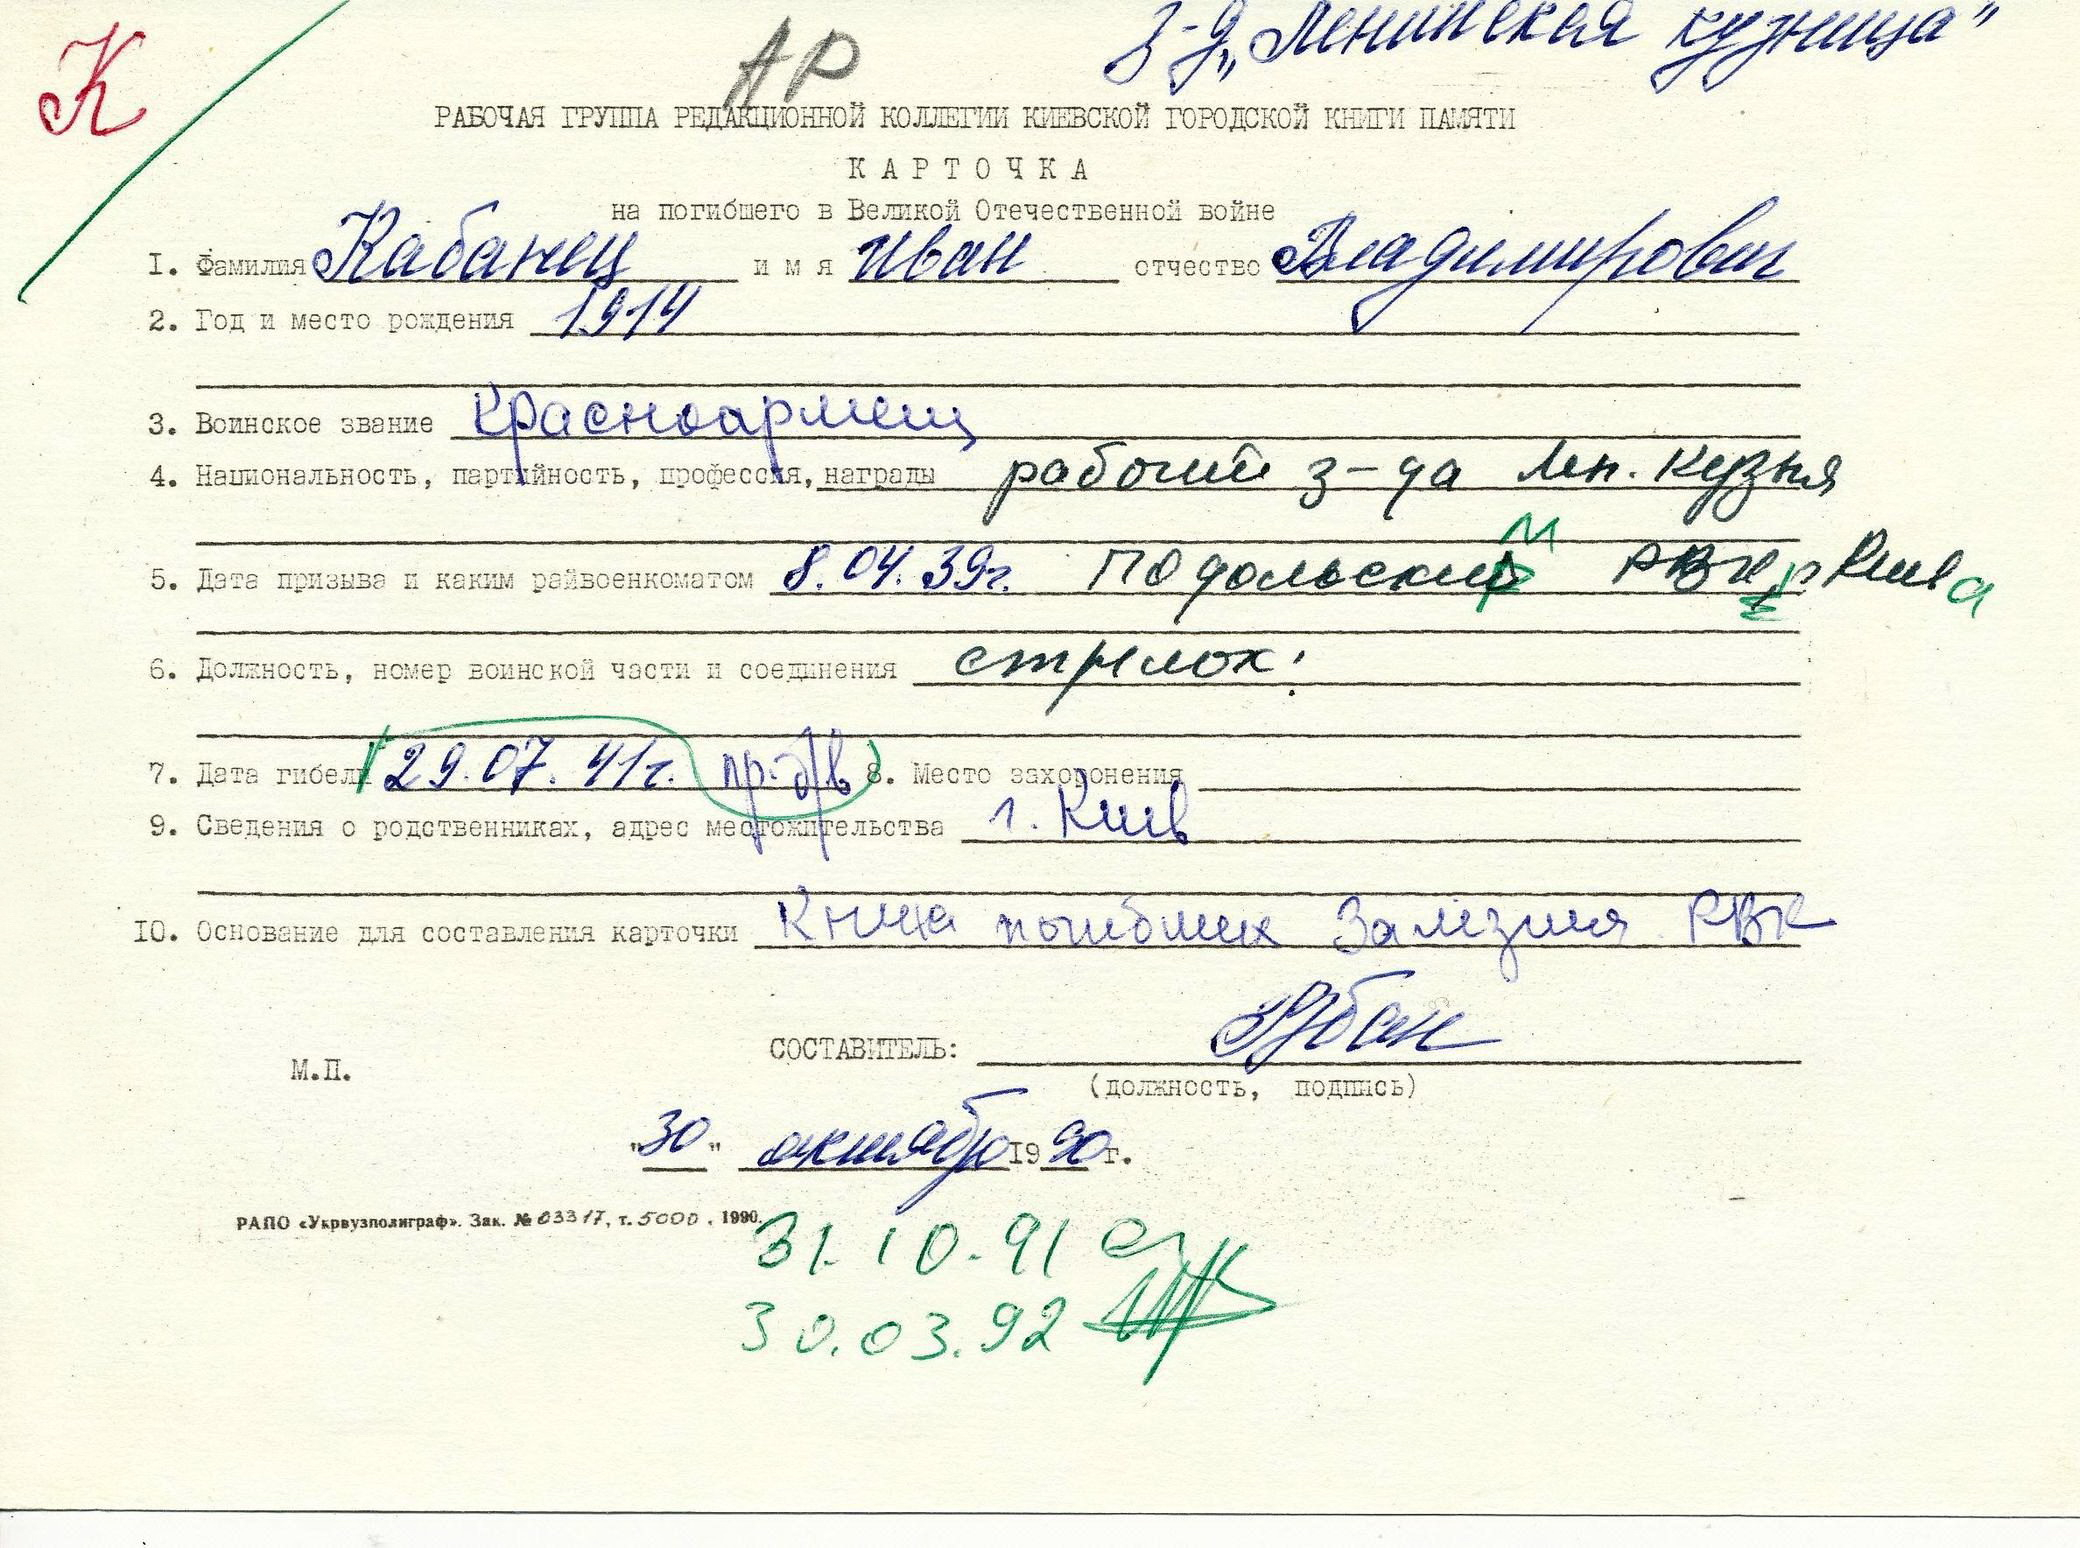 К
АР
з-д „Ленинская кузница"
РАБОЧАЯ ГРУППА РЕДАКЦИОННОЙ КОЛЛЕГИИ КИЕВСКОЙ ГОРОДСКОЙ КНИГИ ПАМЯТИ
КАРТОЧКА
на погибшего в Великой Отечественной войне
I. Фамилия Кабанец имя Иван отчество Владимирович
2. Год и место рождения 1914
3. Воинское звание красноармеец
4. Национальность, партийность, профессия, награды рабочий з-да Лен. кузня
5. Дата призыва и каким райвоенкоматом 8.04.39г. Подольским РВК г. Киева
6. Должность, номер воинской части и соединения стрелок.
7. Дата гибели 29.07.41г. пр. б/в 8. Место захоронения
9. Сведения о родственниках, адрес местожительства г. Киев
10. Основание для составления карточки Книга погибших Зализнич РВК
СОСТАВИТЕЛЬ: Урбан
М.П.
(должность, подпись)
"30" октября 1990г.
РАПО «Укрвузполиграф». Зак. № 03317, т. 5000, 1990.
31.10.91
30.03.92